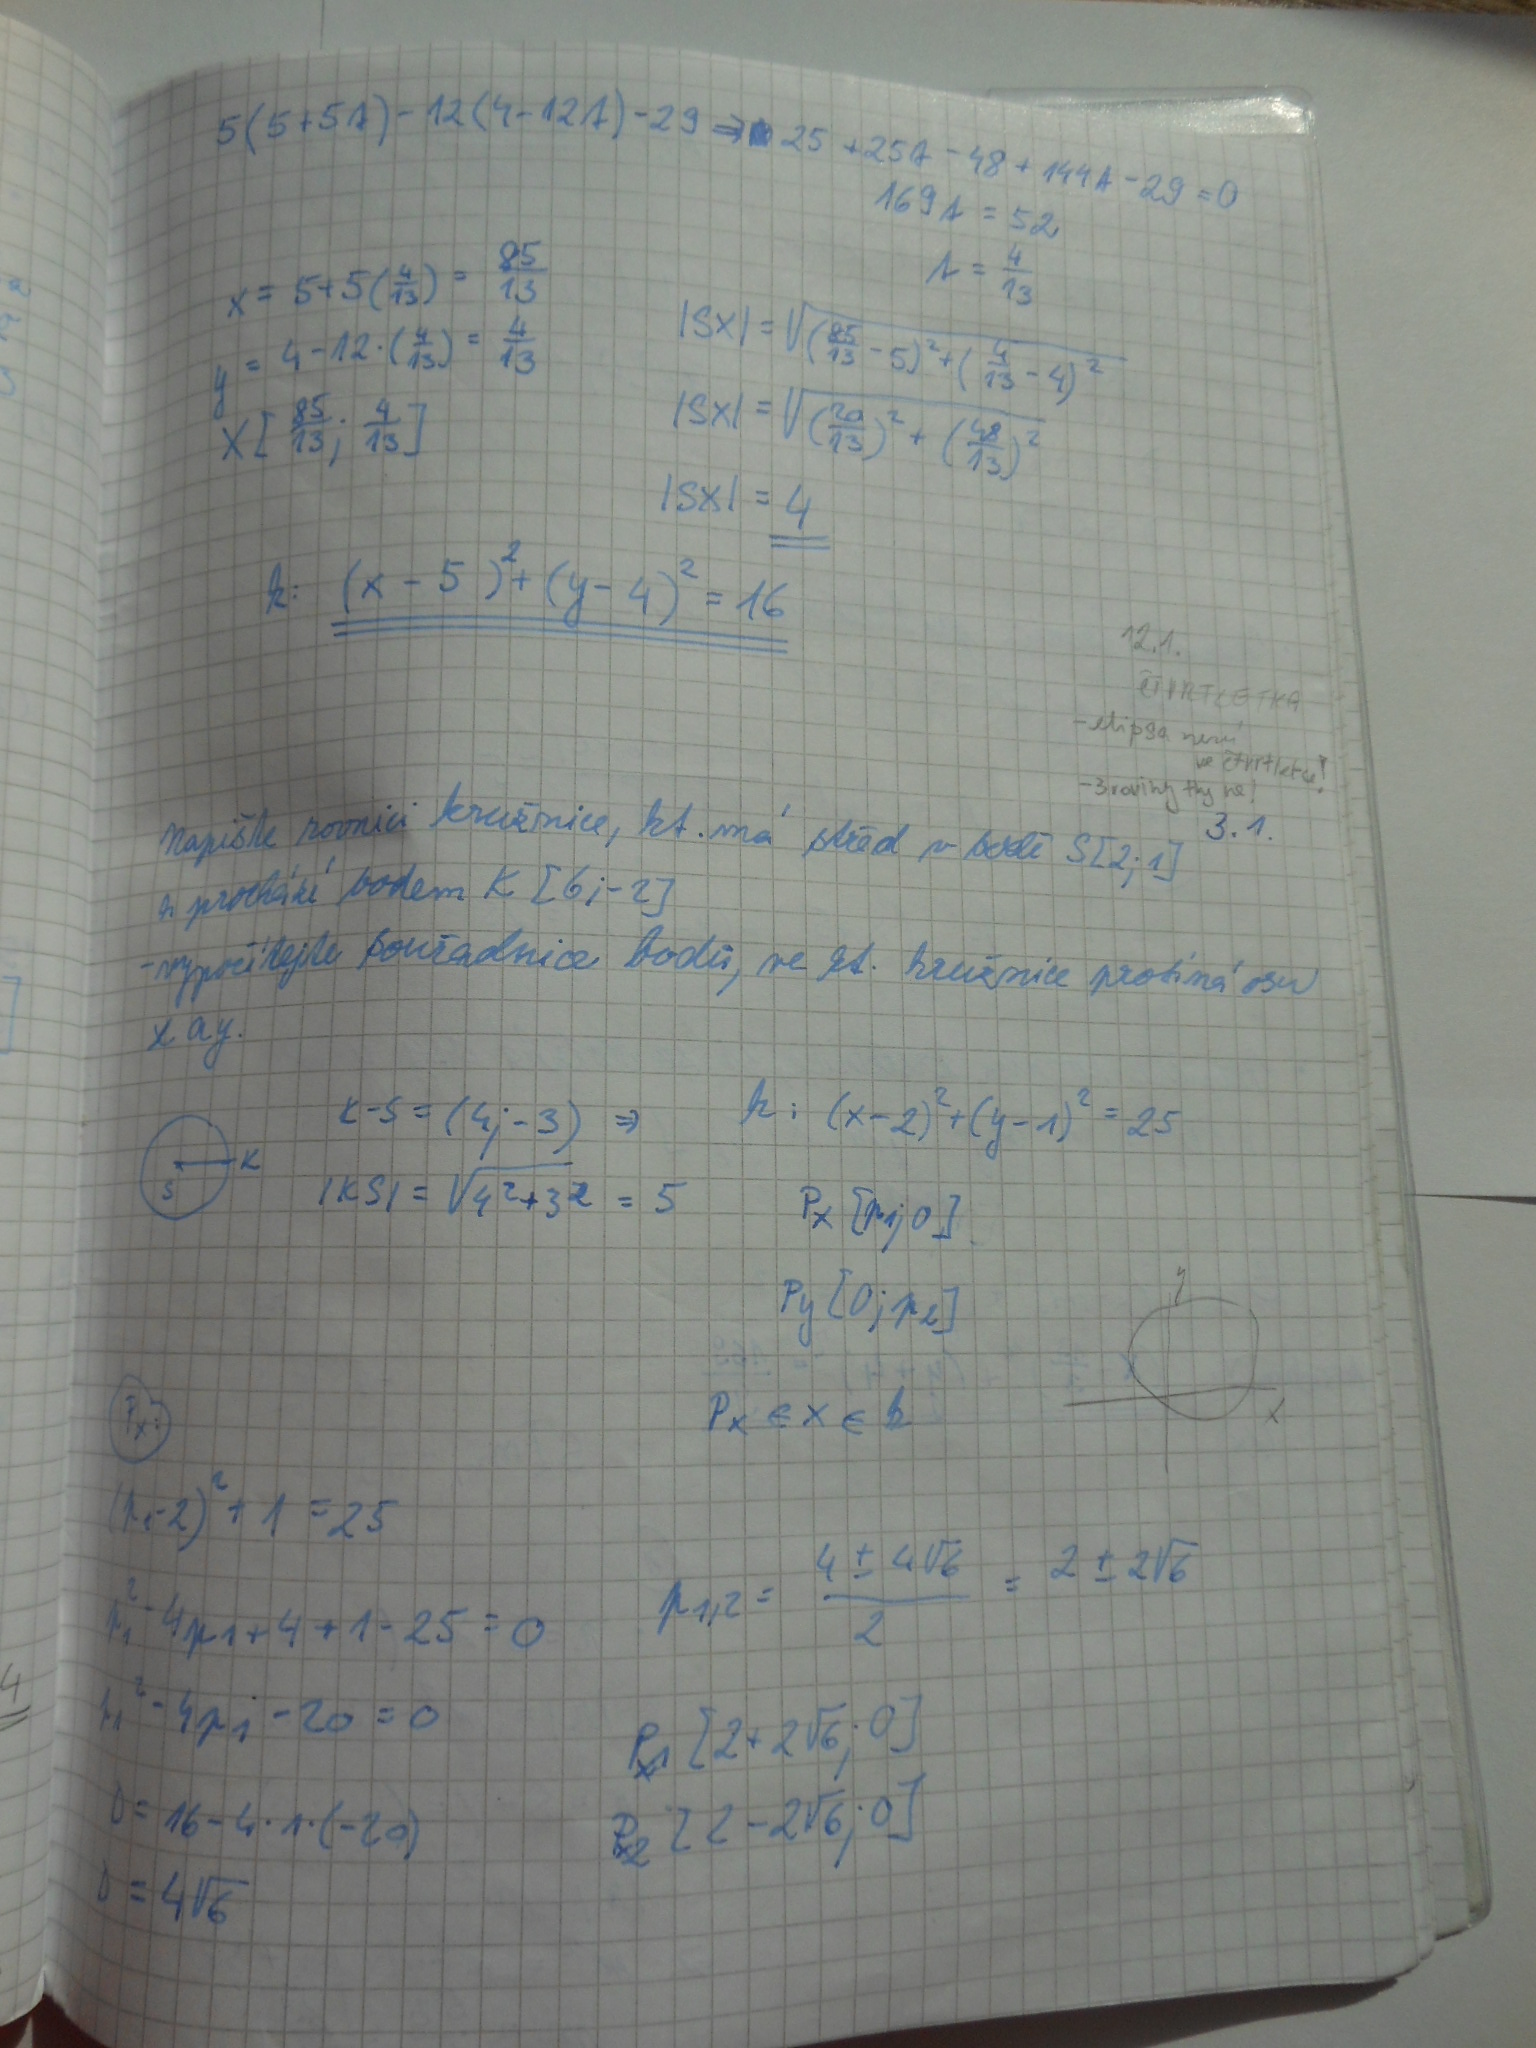 5(5+5t)-12(4-12t)-29 ⇒ 25+25t-48+144t-29=0
169t = 52
t = 4/13
x = 5+5(4/13) = 85/13
y = 4-12·(4/13) = 4/13
X[85/13; 4/13]
|SX| = √((85/13-5)²+(4/13-4)²)
|SX| = √((20/13)²+(48/13)²)
|SX| = 4
k: (x-5)²+(y-4)² = 16
12.1.
ČTVRTLETKA
-elipsa není
ve čtvrtletce!
3.1.
Napište rovnici kružnice, kt. má střed v bodě S[2;1]
a prochází bodem K[6;-2]
-vypočítejte souřadnice bodů, ve kt. kružnice protíná osu
x a y.
S K
K-S = (4;-3) ⇒
|KS| = √(4²+3²) = 5
k: (x-2)²+(y-1)² = 25
Px [p1;0]
Py [0;p2]
Px ∈ x ∈ k
y
x
Px:
(p1-2)²+1 = 25
p1²-4p1+4+1-25 = 0
p1²-4p1-20 = 0
D = 16-4·1·(-20)
D = 4√6
p1,2 = (4±4√6)/2 = 2±2√6
Px1 [2+2√6;0]
Px2 [2-2√6;0]